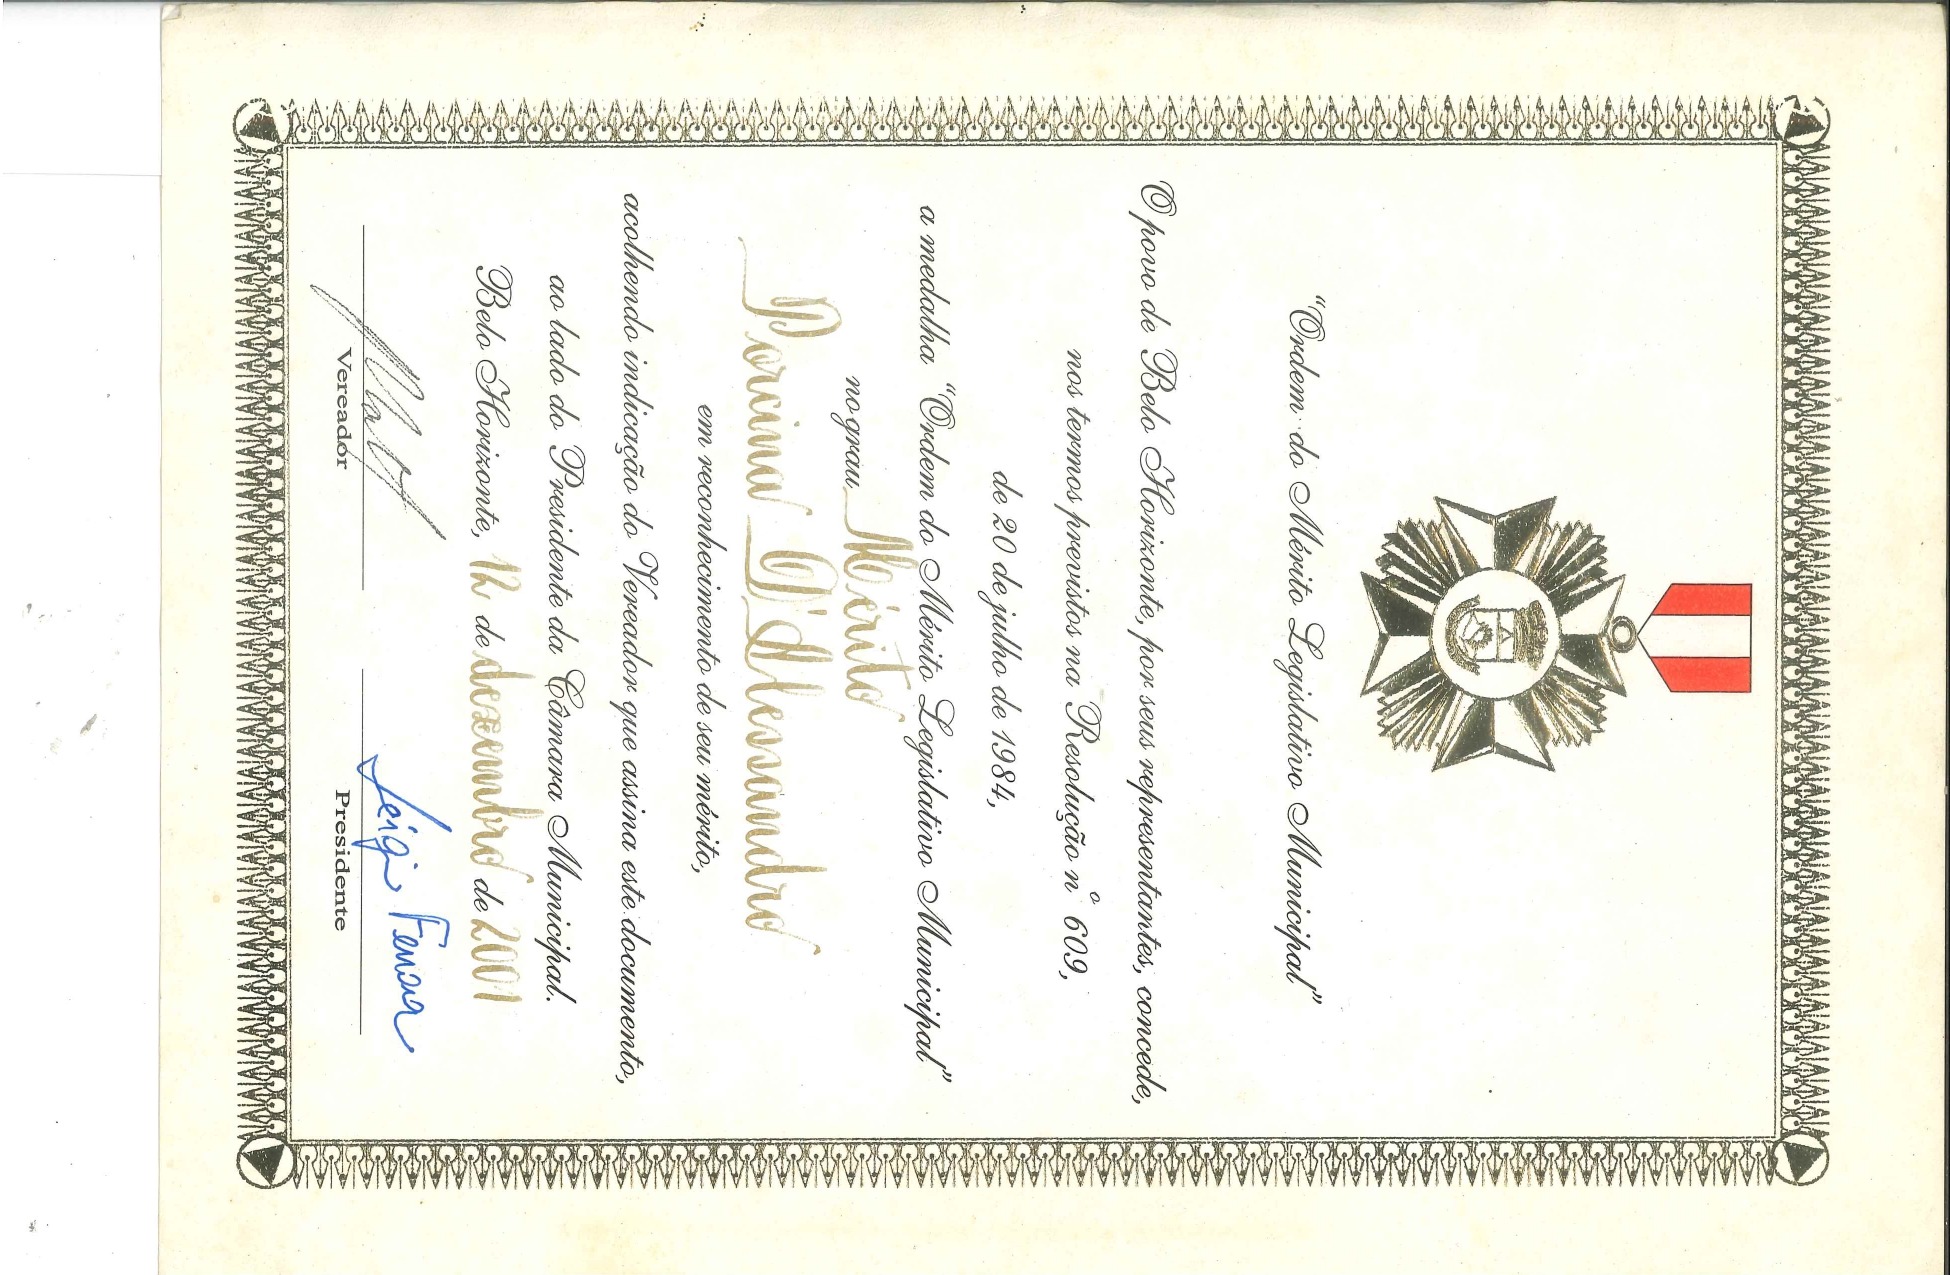 “Ordem do Mérito Legislativo Municipal”
O povo de Belo Horizonte, por seus representantes, concede,
nos termos previstos na Resolução nº 609,
de 20 de julho de 1984,
a medalha “Ordem do Mérito Legislativo Municipal”
no grau Mérito
Porcina D'Alessandro
em reconhecimento de seu mérito,
acolhendo indicação do Vereador que assina este documento,
ao lado do Presidente da Câmara Municipal.
Belo Horizonte, 12 de dezembro de 2001
Vereador
Presidente